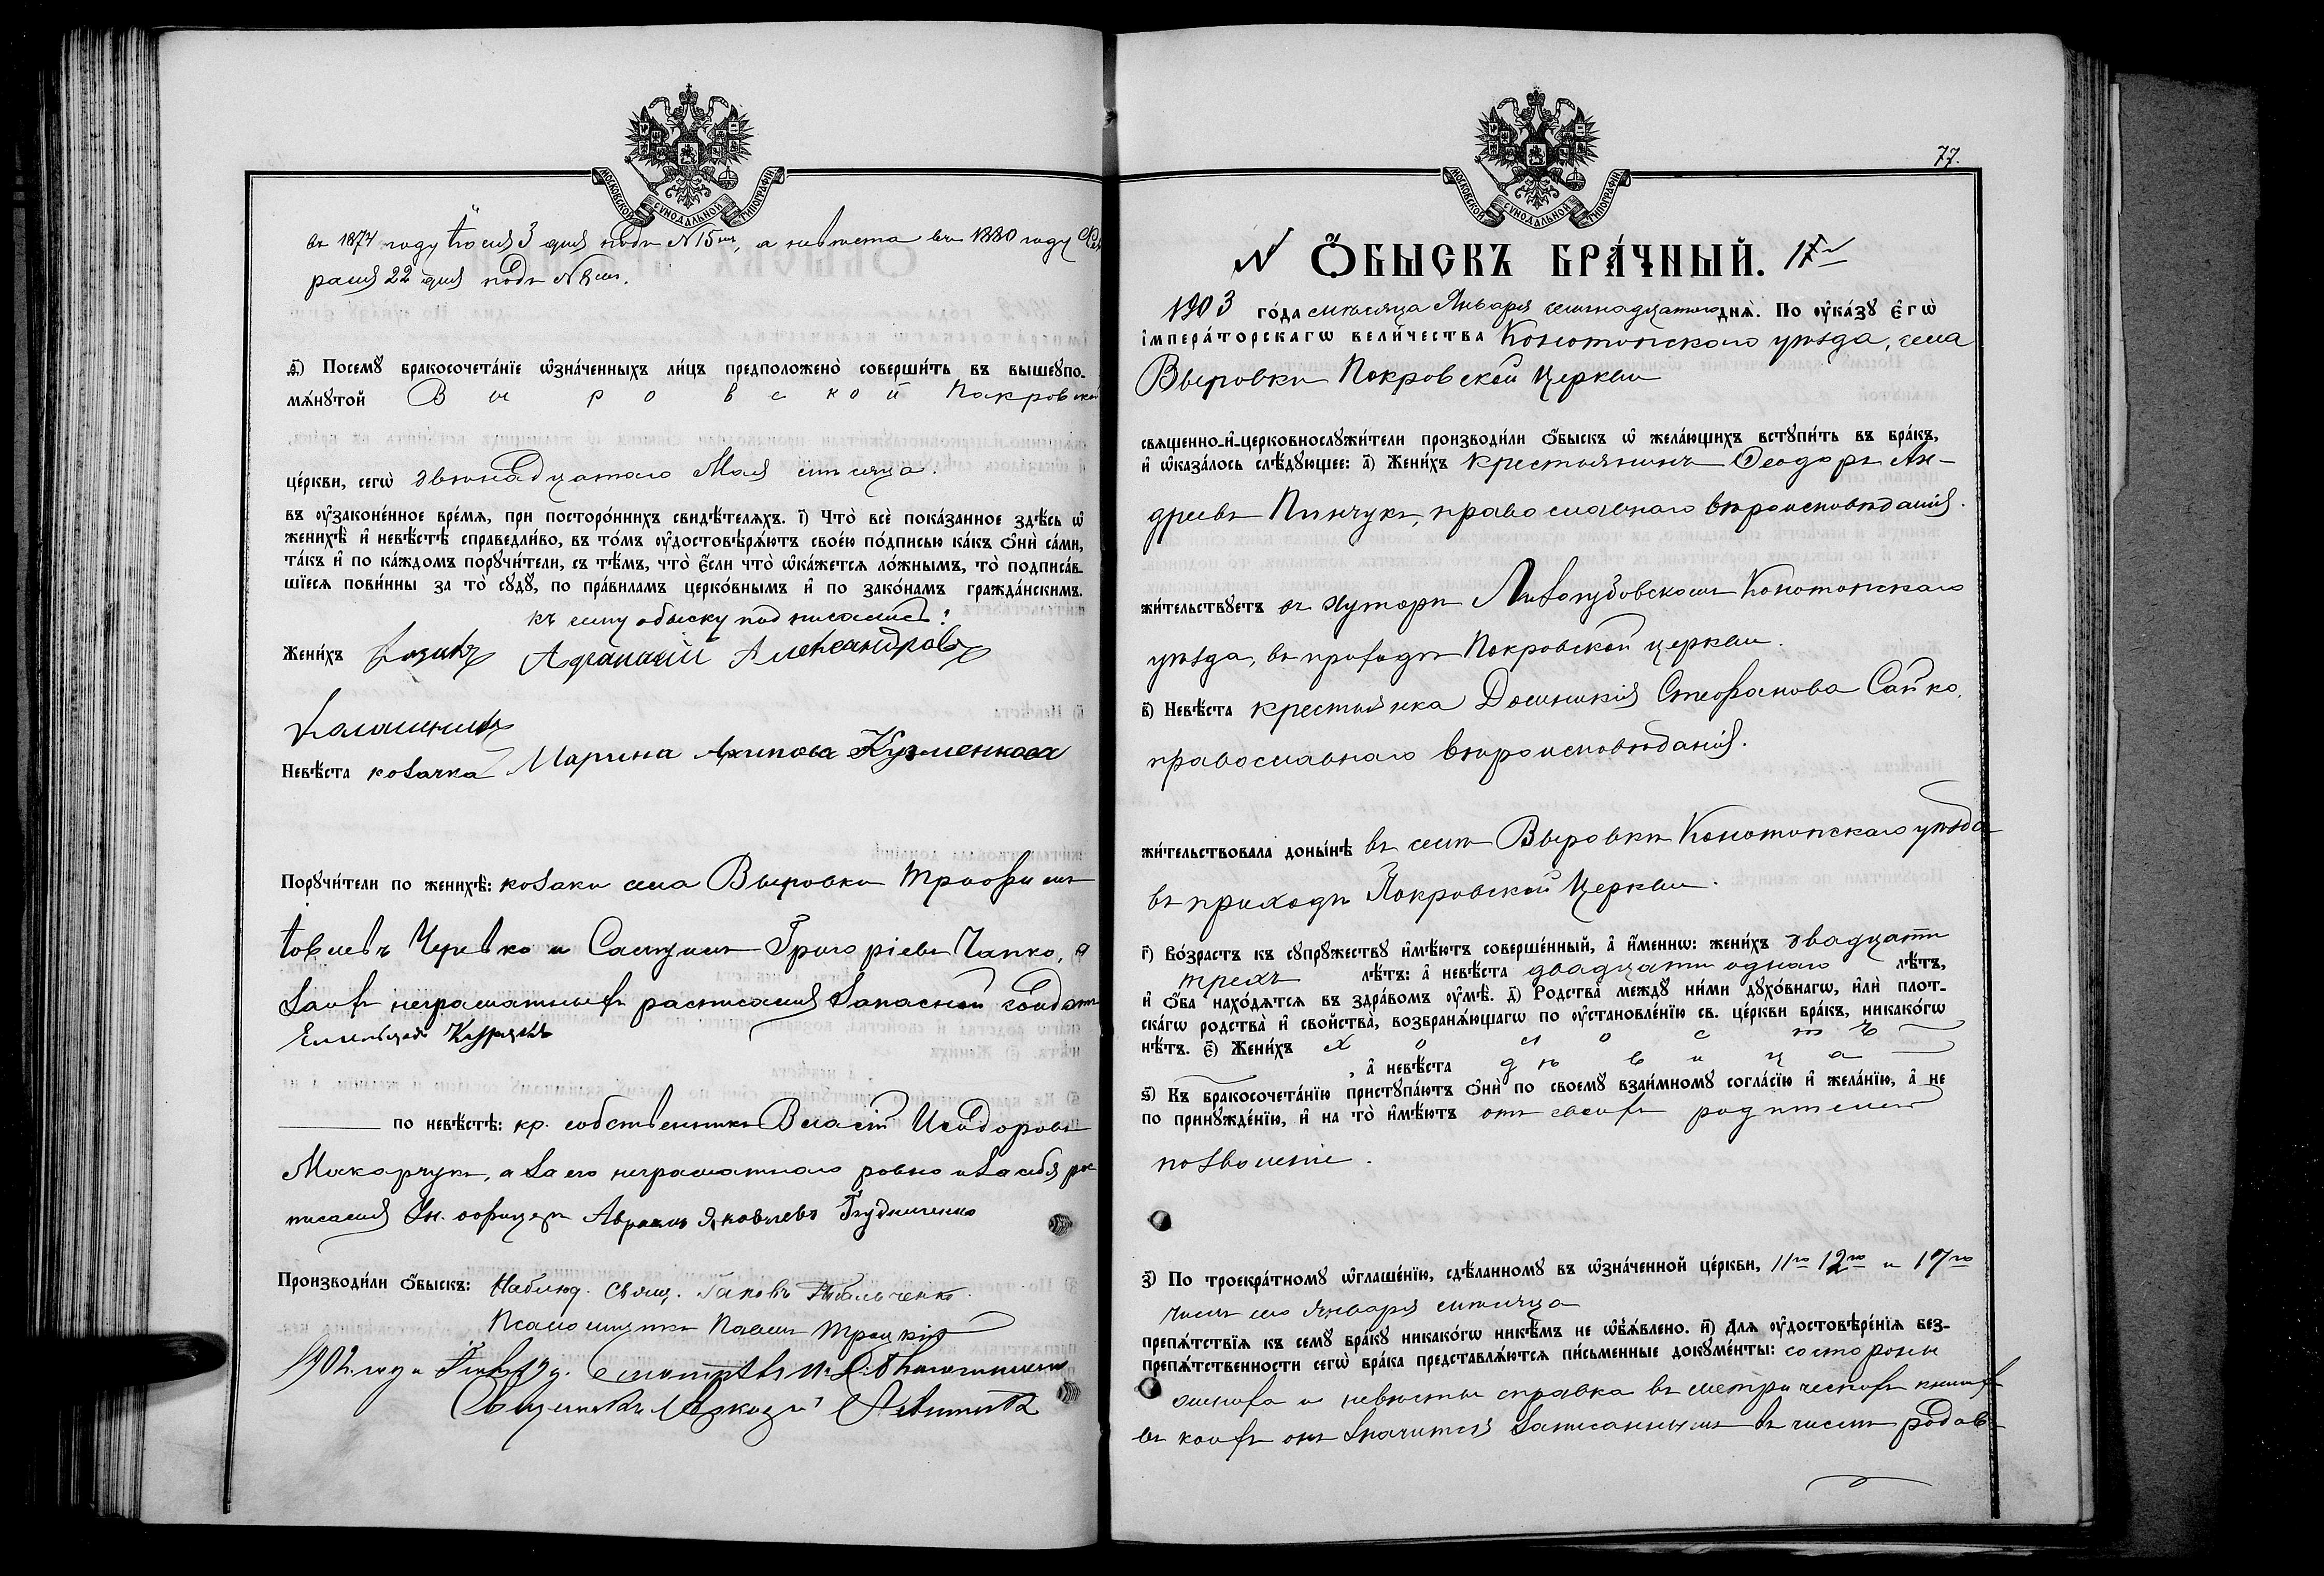 МОСКОВСКОЙ СѴНОДАЛЬНОЙ ТИПОГРАФІИ
въ 1874 году Іюля 3 дня подъ №15мъ, а невѣста въ 1880 году Фев
раля 22 дня подъ №8мъ.
Посемꙋ бракосочета́нїе ѡ҆зна́ченныхъ ли́цъ предположено̀ соверши́ть въ вышеꙋпо-
мѧ́нꙋтой Выровской Покровской
це́ркви, сегѡ̀ двенадцатого Мая мѣсяца.
въ оу҆законе́нное вре́мѧ, при посторо́ннихъ свидѣ́телѧхъ. і҃) Что̀ всѐ пока́занное здѣ́сь ѡ҆
женихѣ̀ и҆ невѣ́стѣ справедли́во, въ то́мъ оу҆достовѣрѧ́ютъ свое́ю по́дписью ка́къ ѻ҆нѝ са́ми,
та́къ и҆ по ка́ждомъ порꙋчи́тели, съ тѣ́мъ, что̀ є҆́сли что̀ ѡ҆ка́жетсѧ ло́жнымъ, то̀ подписа́в-
шїесѧ пови́нны за то̀ сꙋдꙋ̀, по пра́виламъ церко́внымъ и҆ по зако́намъ гражда́нскимъ.
къ сему обыску подписались:
Жени́хъ козакъ Афанасій Александровъ
Невѣ́ста козачка Марина Архипова Кузменкова
Порꙋчи́тели по женихѣ̀: козаки села Выровки Трофимъ
Іовлевъ Черевко и Самуилъ Григоріевъ Чапко, а
за ихъ неграмотныхъ расписался запасной солдатъ
по невѣ́стѣ: кр. собственникъ Власій Исидоровъ
Макарчукъ, а за его неграмотного ровно и за себя рос
писался Ун. офицеръ Авраамъ Яковлевъ
Производи́ли ѻ҆́быскъ: Наблюд. Свящ. Іаковъ
Псаломщикъ Павелъ Троцкій
1902 года
Священникъ
МОСКОВСКОЙ СѴНОДАЛЬНОЙ ТИПОГРАФІИ
77.
№ Ѻ҆́БЫСКЪ БРА́ЧНЫЙ. 17й
1903 го́да мѣсяца Января семнадцатого днѧ̀. По оу҆ка́зꙋ є҆гѡ̀
і҆мпера́торскагѡ вели́чества Конотопского уѣзда, села
Выровки Покровской Церкви
свѧщенно-и҆-церковнослꙋжи́тели производи́ли ѻ҆́быскъ ѡ҆ жела́ющихъ встꙋпи́ть въ бра́къ,
и҆ ѡ҆каза́лось слѣ́дꙋющее: а҃) Жени́хъ крестьянинъ Ѳеодоръ Ан-
дреевъ Пинчукъ, православного вѣроисповѣданія.
жи́тельствꙋетъ въ хуторѣ Лизогубовскомъ Конотопского
уѣзда, въ приходѣ Покровской церкви.
в҃) Невѣ́ста крестьянка Домникія Стефанова Сайко,
православного вѣроисповѣданія.
жи́тельствовала доны́нѣ въ селѣ Выровкѣ Конотопского уѣзда
въ приходѣ Покровской Церкви.
г҃) Во́зрастъ къ сꙋпрꙋжествꙋ и҆мѣ́ютъ соверше́нный, а҆ и҆́меннѡ: жени́хъ двадцати
трехъ лѣ́тъ: а҆ невѣ́ста двадцати одного лѣ́тъ,
и҆ ѻ҆́ба нахо́дѧтсѧ въ здра́вомъ оу҆мѣ̀. д҃) Родства̀ междꙋ ни́ми дꙋхо́внагѡ, и҆лѝ плот-
ска́гѡ родства̀ и҆ свойства̀, возбранѧ́ющагѡ по оу҆становле́нїю св. це́ркви бра́къ, никако́гѡ
нѣ́тъ. є҃) Жени́хъ холостъ
, а҆ невѣ́ста дѣвица
ѕ҃) Къ бракосочета́нїю пристꙋпа́ютъ ѻ҆нѝ по своемꙋ̀ взаи́мномꙋ согла́сїю и҆ жела́нїю, а҆ не
по принꙋжде́нїю, и҆ на то̀ и҆мѣ́ютъ отъ своихъ родителей
позволеніе.
з҃) По троекра́тномꙋ ѡ҆глаше́нїю, сдѣ́ланномꙋ въ ѡ҆зна́ченной це́ркви, 11го 12го и 17го
числъ Января мѣсяца
препѧ́тствїѧ къ семꙋ̀ бра́кꙋ никако́гѡ никѣ́мъ не ѡ҆б̾ѧ́влено. и҃) Длѧ̀ оу҆достовѣре́нїѧ без-
препѧ́тственности сегѡ̀ бра́ка представлѧ́ютсѧ пи́сьменные докꙋме́нты: со стороны
жениха и невѣсты справка въ метрическихъ книгахъ
въ коихъ онъ значится записаннымъ въ числѣ родив